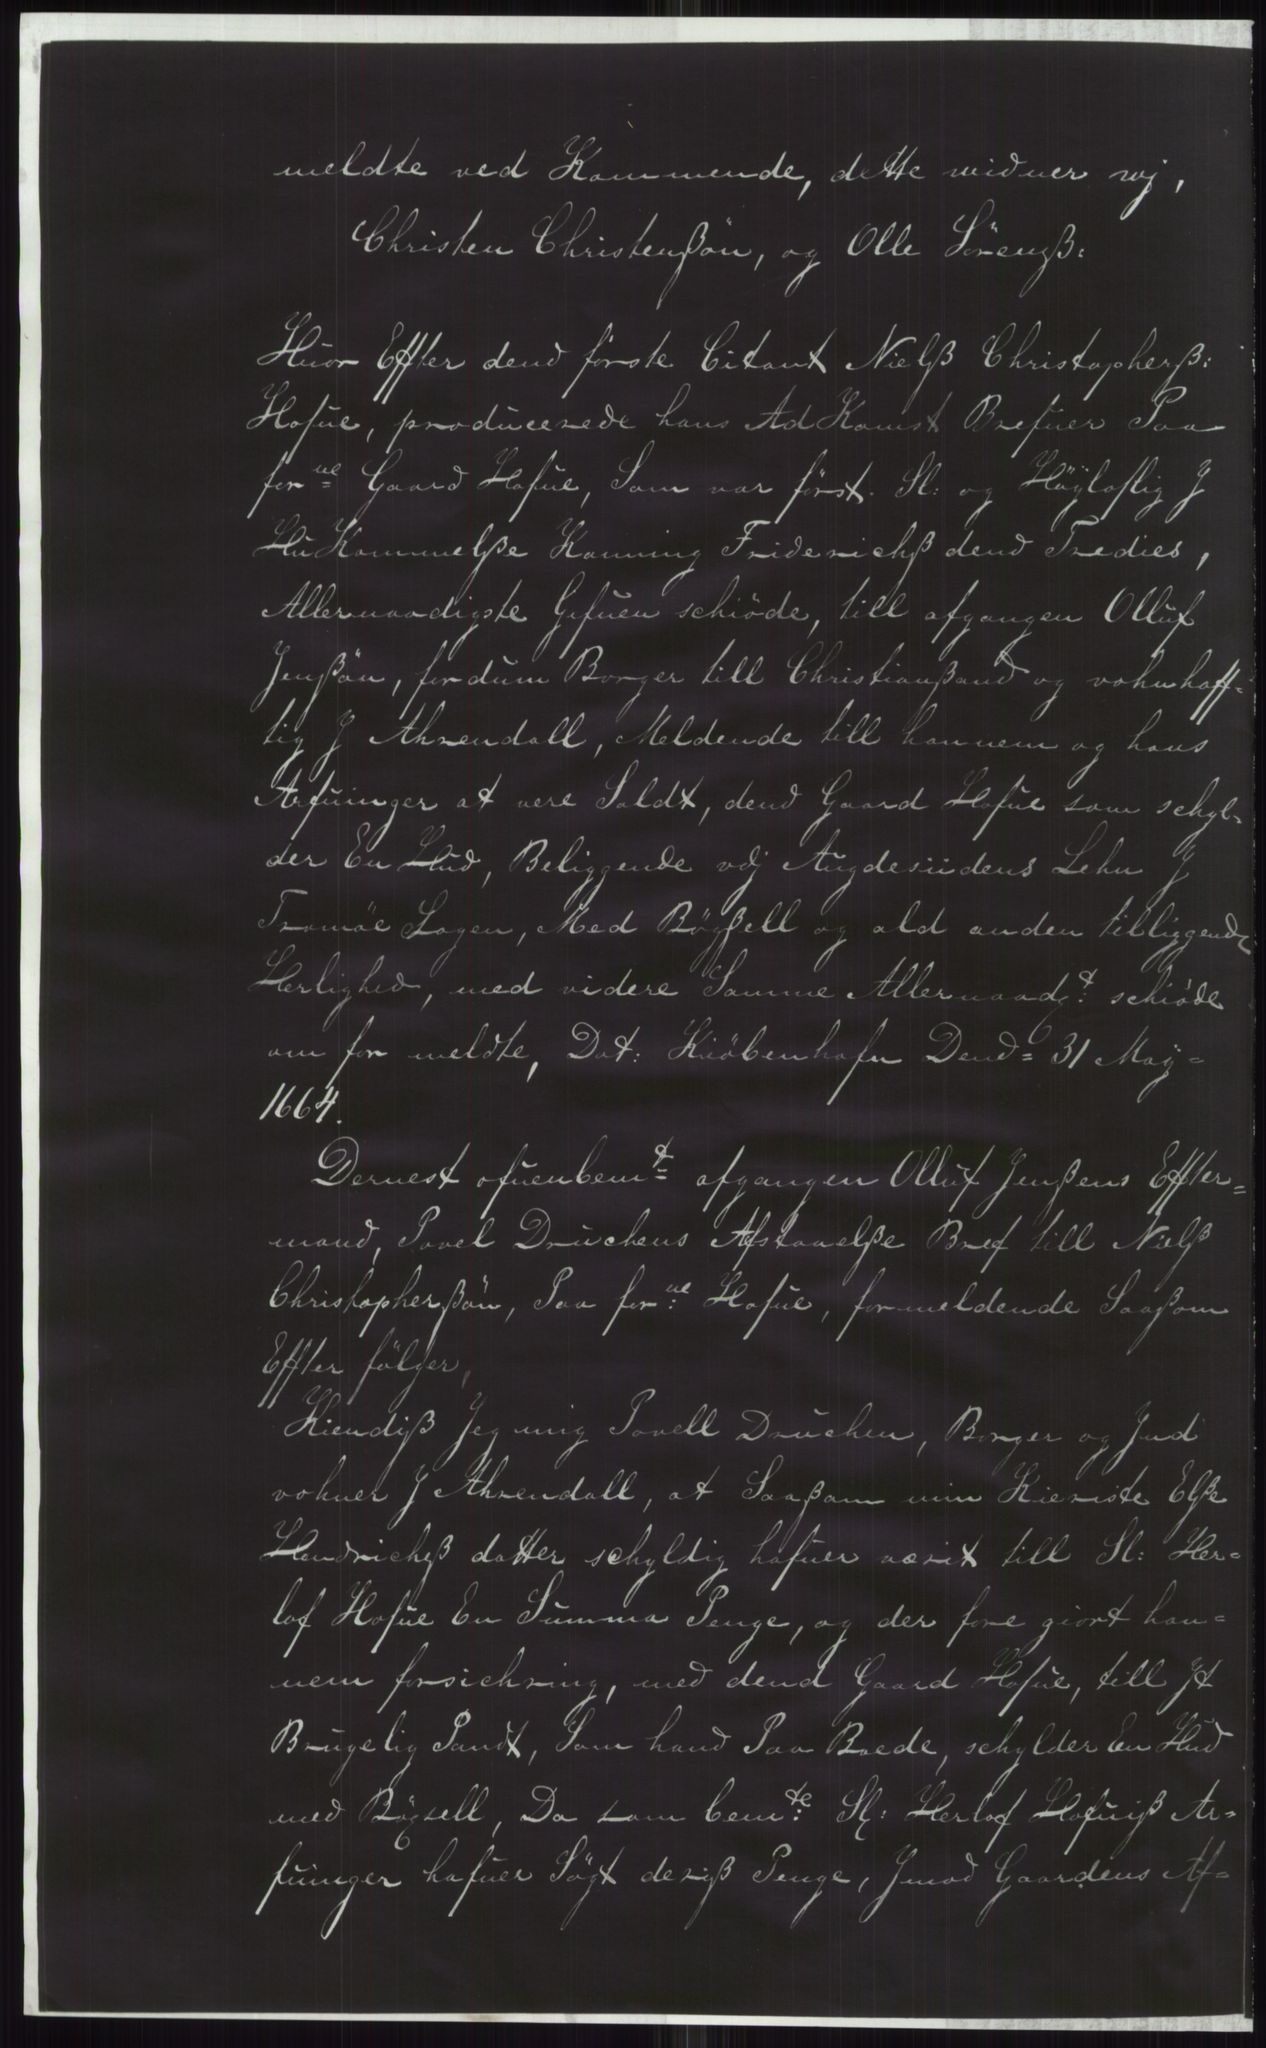 meldte ved Kommende, dette widner wj,
Christen Christenßön, og Olle Sörenß:
Huor Effter dend förste Citant Nielß Christopherß:
Hofue, producerede hans Ad Komst Brefuer Paa
for ne Gaard Hofue, Som var först. Sl: og Höÿloflig J
Hu Kommelße Konning Friderichß dend Tredies,
Allernaadigste Gifuen schiöde, till afgangen Olluf
Jenßön, fordum Borger till Christianßand og vohnhaff-
tig J Ahrendall, Meldende till hannem og hans
Arfuinger at vere Soldt, dend Gaard Hofue som schyl-
der En Hud, Beliggende vdj Augdesiidens Lehn J
Tromöe Sogen, Med Böÿßell og ald anden tilliggende
Herlighed, med videre Samme Allernaadt: schiöde
om for meldte, Dat: Kiöbenhafn Dend= 31 Maÿ=
1664.
Dernest ofuenbemt= afgangen Olluf Jenßens Effter=
mand, Povel Druchens Afstaaelße Bref till Nielß
Christopherßön, Paa for ne: Hofue, formeldende Saaßom
Effter fölger,
Kiendiß Jeg mig Povell Druchen, Borger og Jnd
vohner J Ahrendall, at Saaßom min Kieriste Elße
Hendrichß datter schyldig hafuer værit till Sl: Her=
lof Hofue En Summa Penge, og der fore giort han=
nem forsichring, med dend Gaard Hofue, till Jt
Brugelig Pandt, Som hand Paa Boede, schylder En Hud
med Böÿsell, Da som bemte: Sl: Herlof Hofuiß Ar=
fuinger hafuer Sögt deriß Penge, Jmod Gaardens Af=